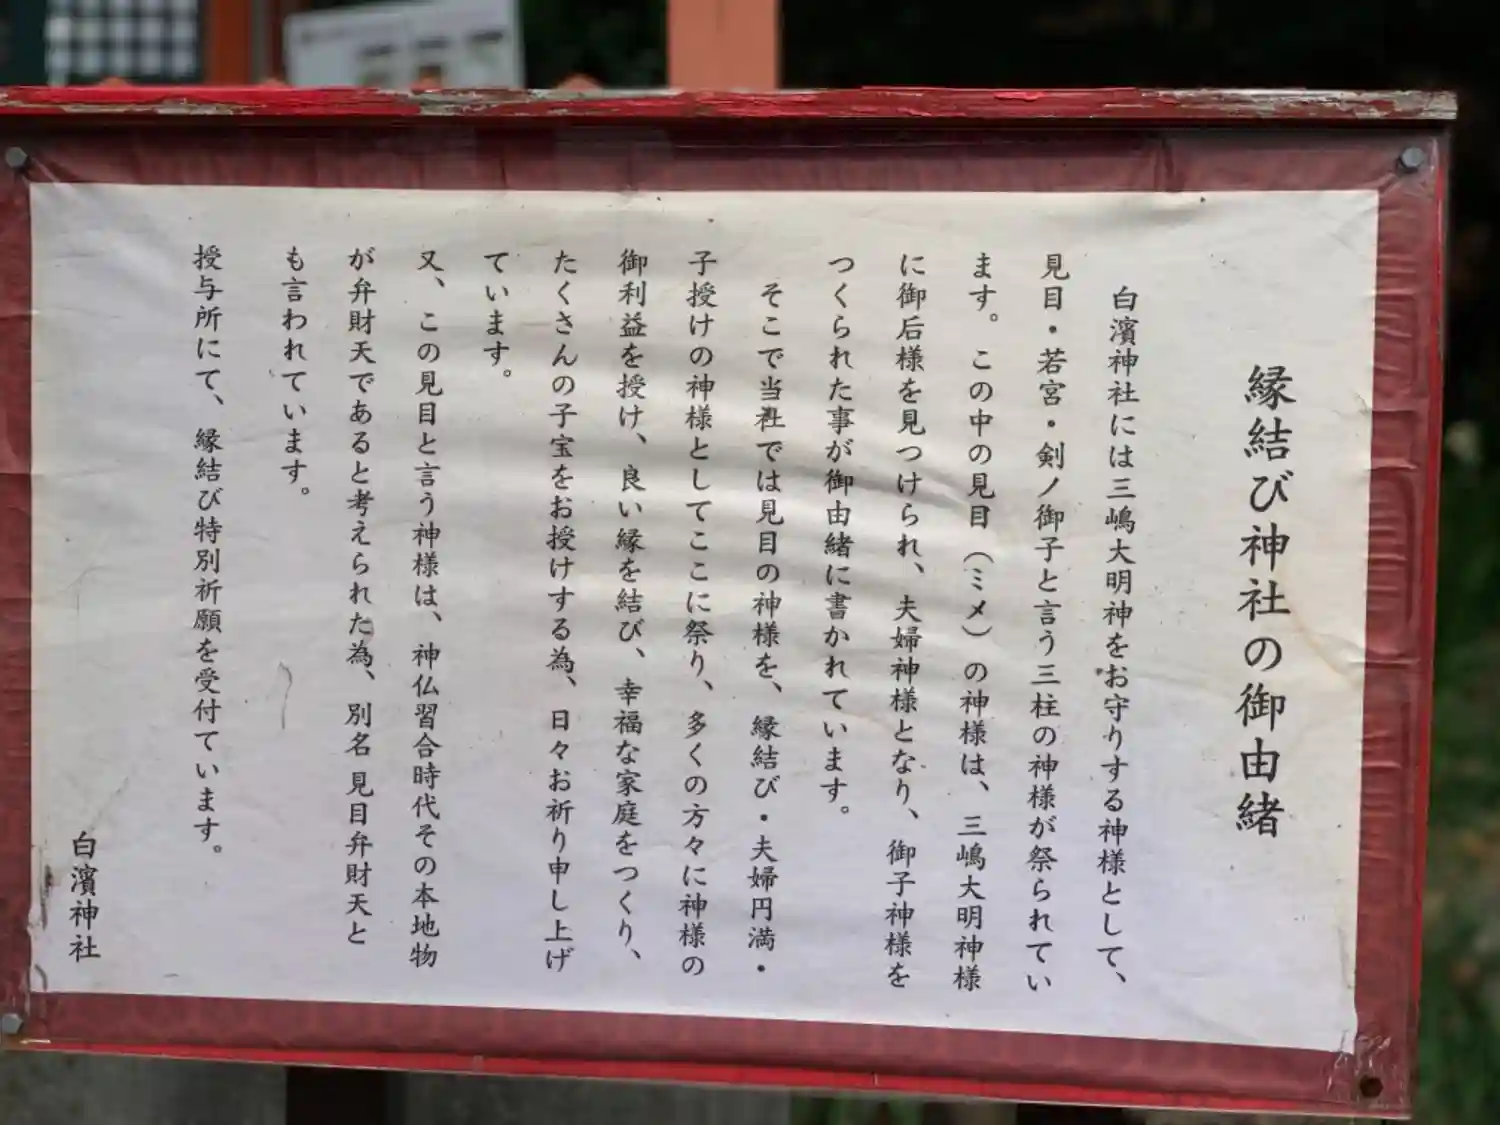 縁結び神社の御由緒
白濱神社には三嶋大明神をお守りする神様として、
見目・若宮・剣ノ御子と言う三柱の神様が祭られてい
ます。この中の見目（ミメ）の神様は、三嶋大明神様
に御后様を見つけられ、夫婦神様となり、御子神様を
つくられた事が御由緒に書かれています。
そこで当社では見目の神様を、縁結び・夫婦円満・
子授けの神様としてここに祭り、多くの方々に神様の
御利益を授け、良い縁を結び、幸福な家庭をつくり、
たくさんの子宝をお授けする為、日々お祈り申し上げ
ています。
又、この見目と言う神様は、神仏習合時代その本地物
が弁財天であると考えられた為、別名 見目弁財天と
も言われています。
授与所にて、縁結び特別祈願を受付ています。
白濱神社